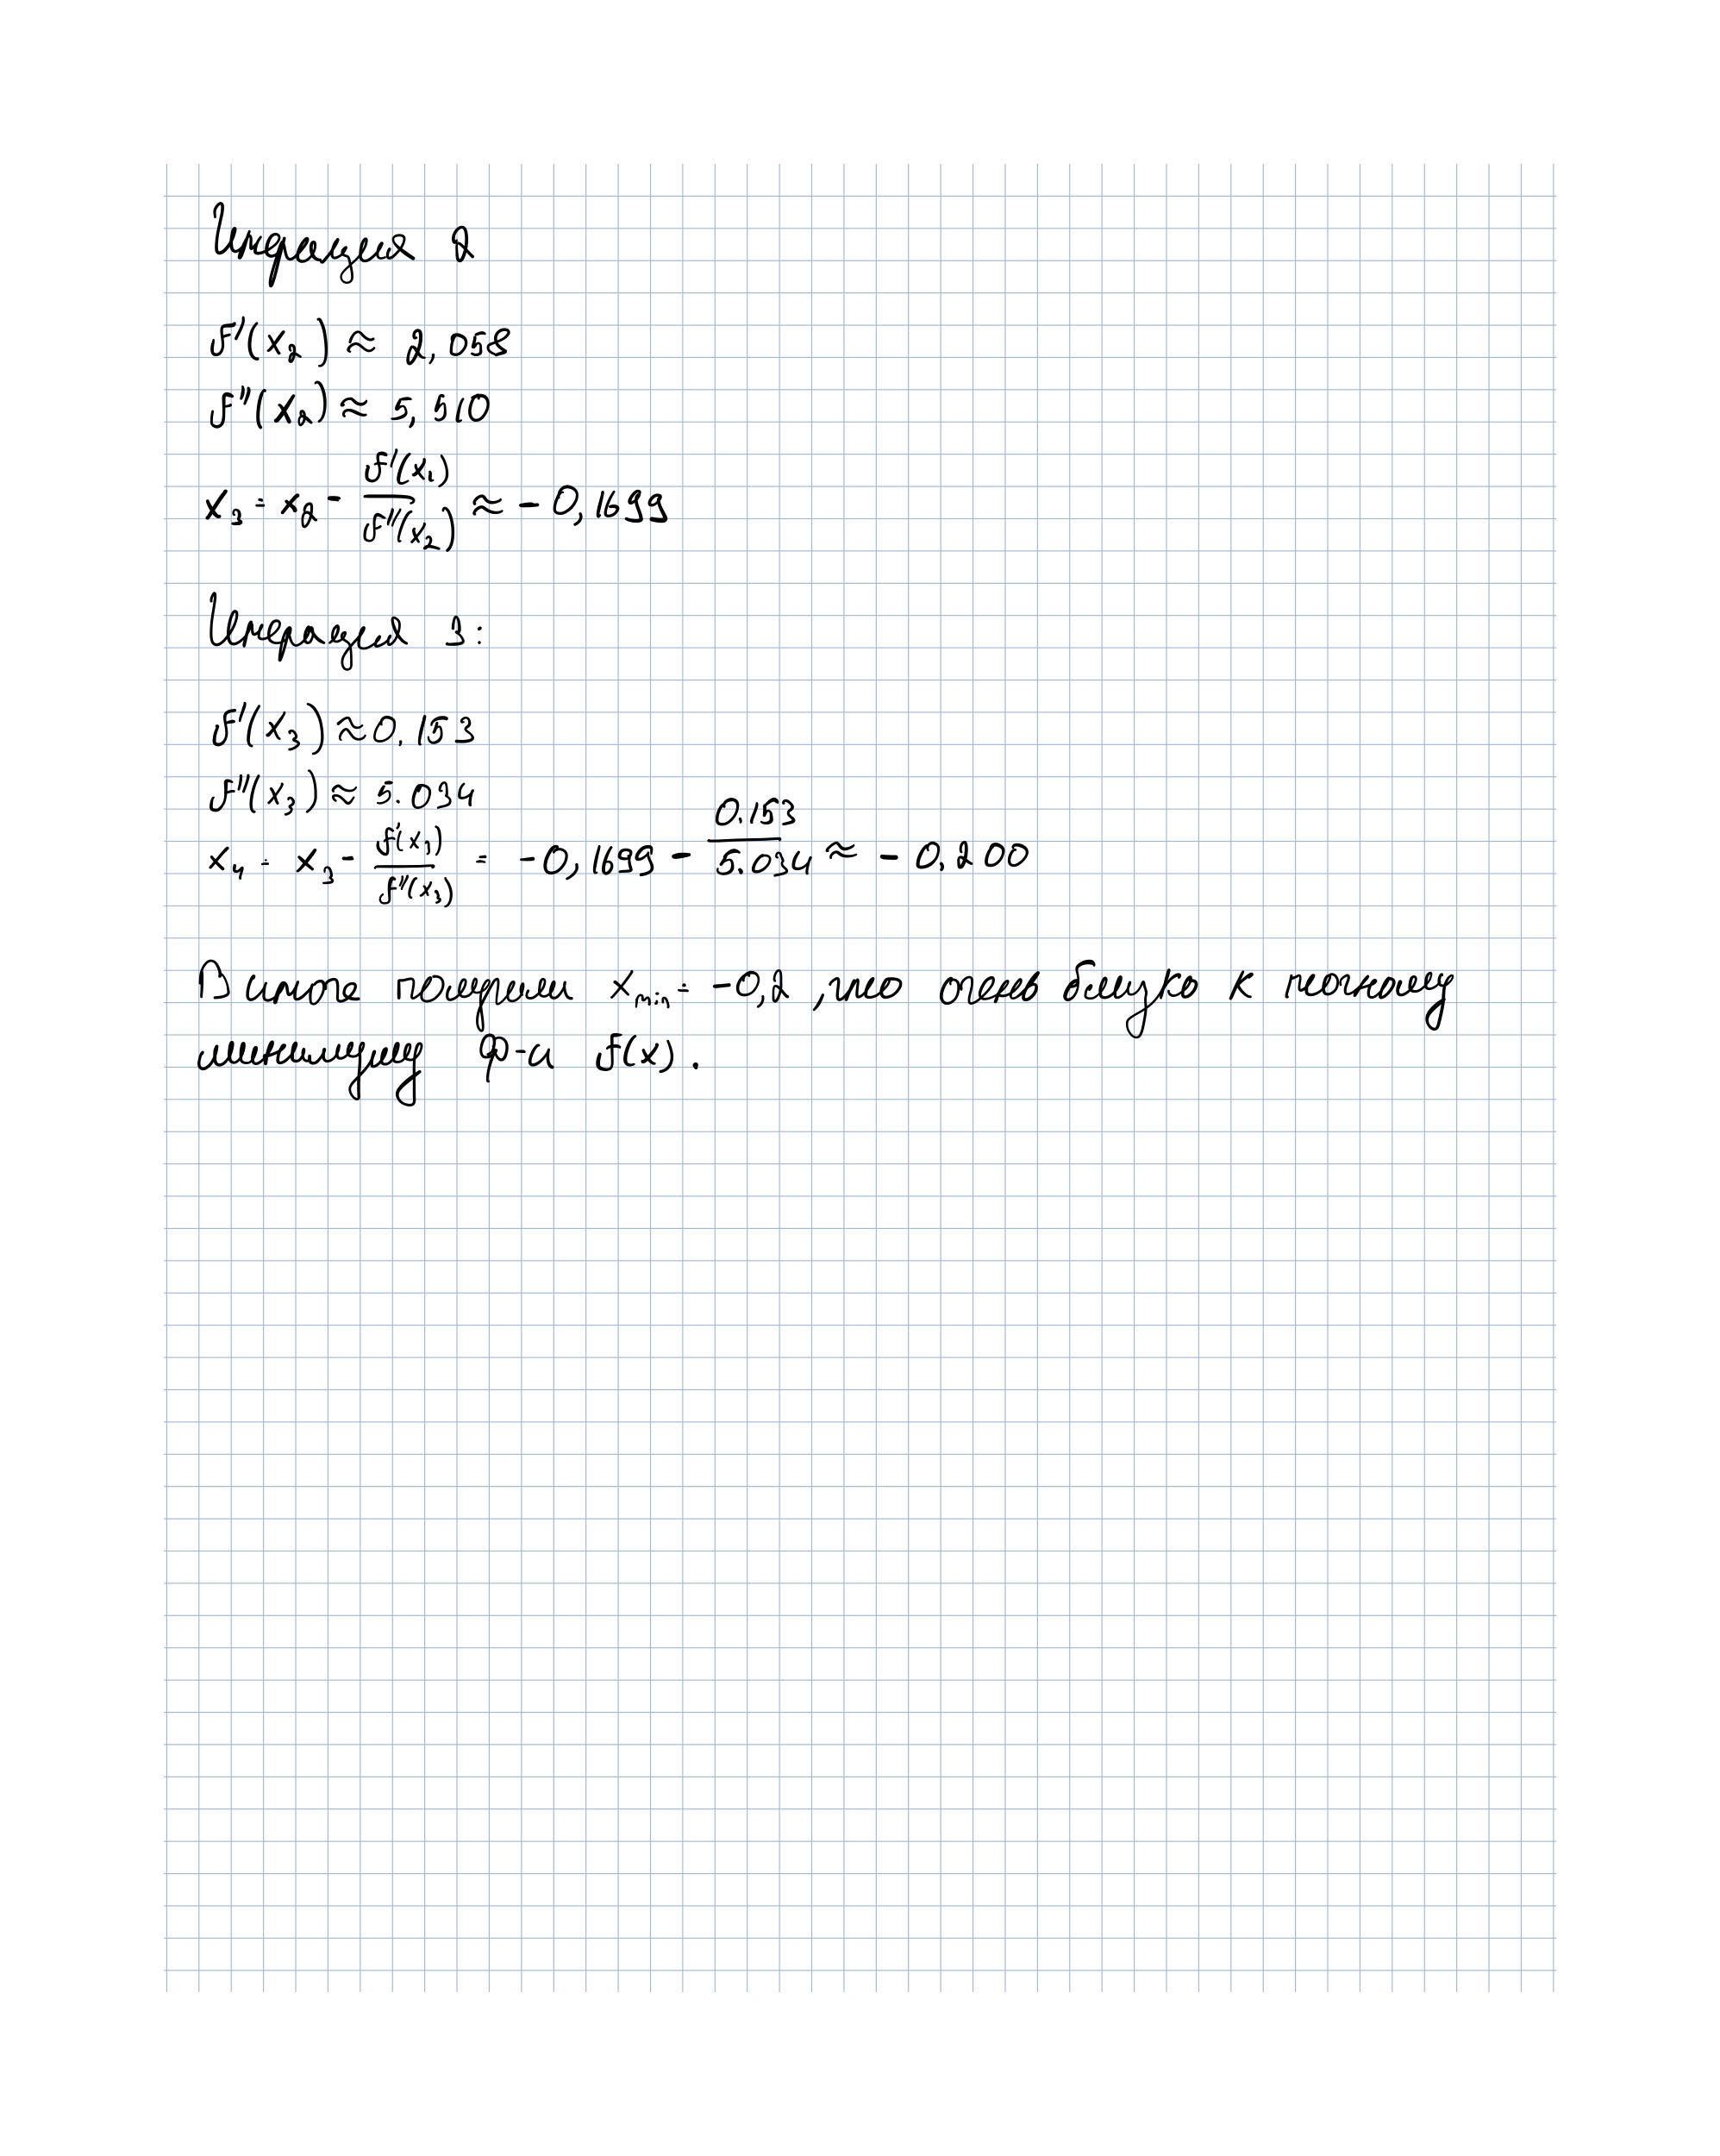 Итерация 2
f'(x₂) ≈ 2,058
f''(x₂) ≈ 5,510
x₃ = x₂ - f'(x₁)/f''(x₂) ≈ -0,1699
Итерация 3:
f'(x₃) ≈ 0.153
f''(x₃) ≈ 5.034
x₄ = x₃ - f'(x₃)/f''(x₃) = -0,1699 - 0.153/5.034 ≈ -0,200
В итоге получили x_min = -0,2, что очень близко к точному
минимуму ф-и f(x).